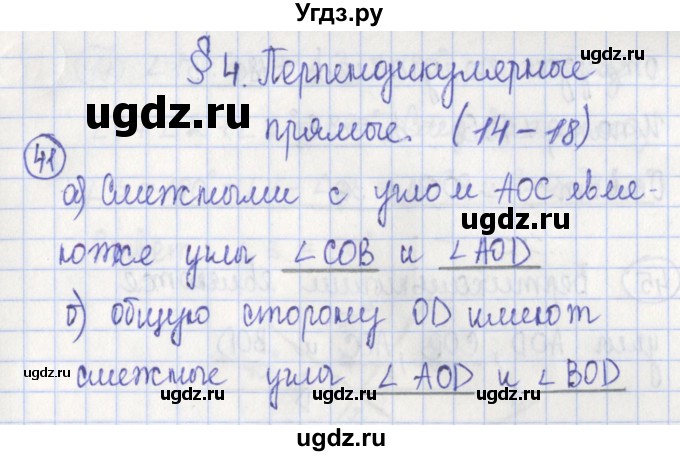 Угдз.ру
§ 4. Перпендикулярные
прямые. (14-18)
41
а) Смежными с углом AOC явля-
ются углы ∠COB и ∠AOD
б) общую сторону OD имеют
смежные углы ∠AOD и ∠BOD
ugdz.ru
ugdz.ru
ugdz.ru
ugdz.ru
ugdz.ru
ugdz.ru
ugdz.ru
ugdz.ru